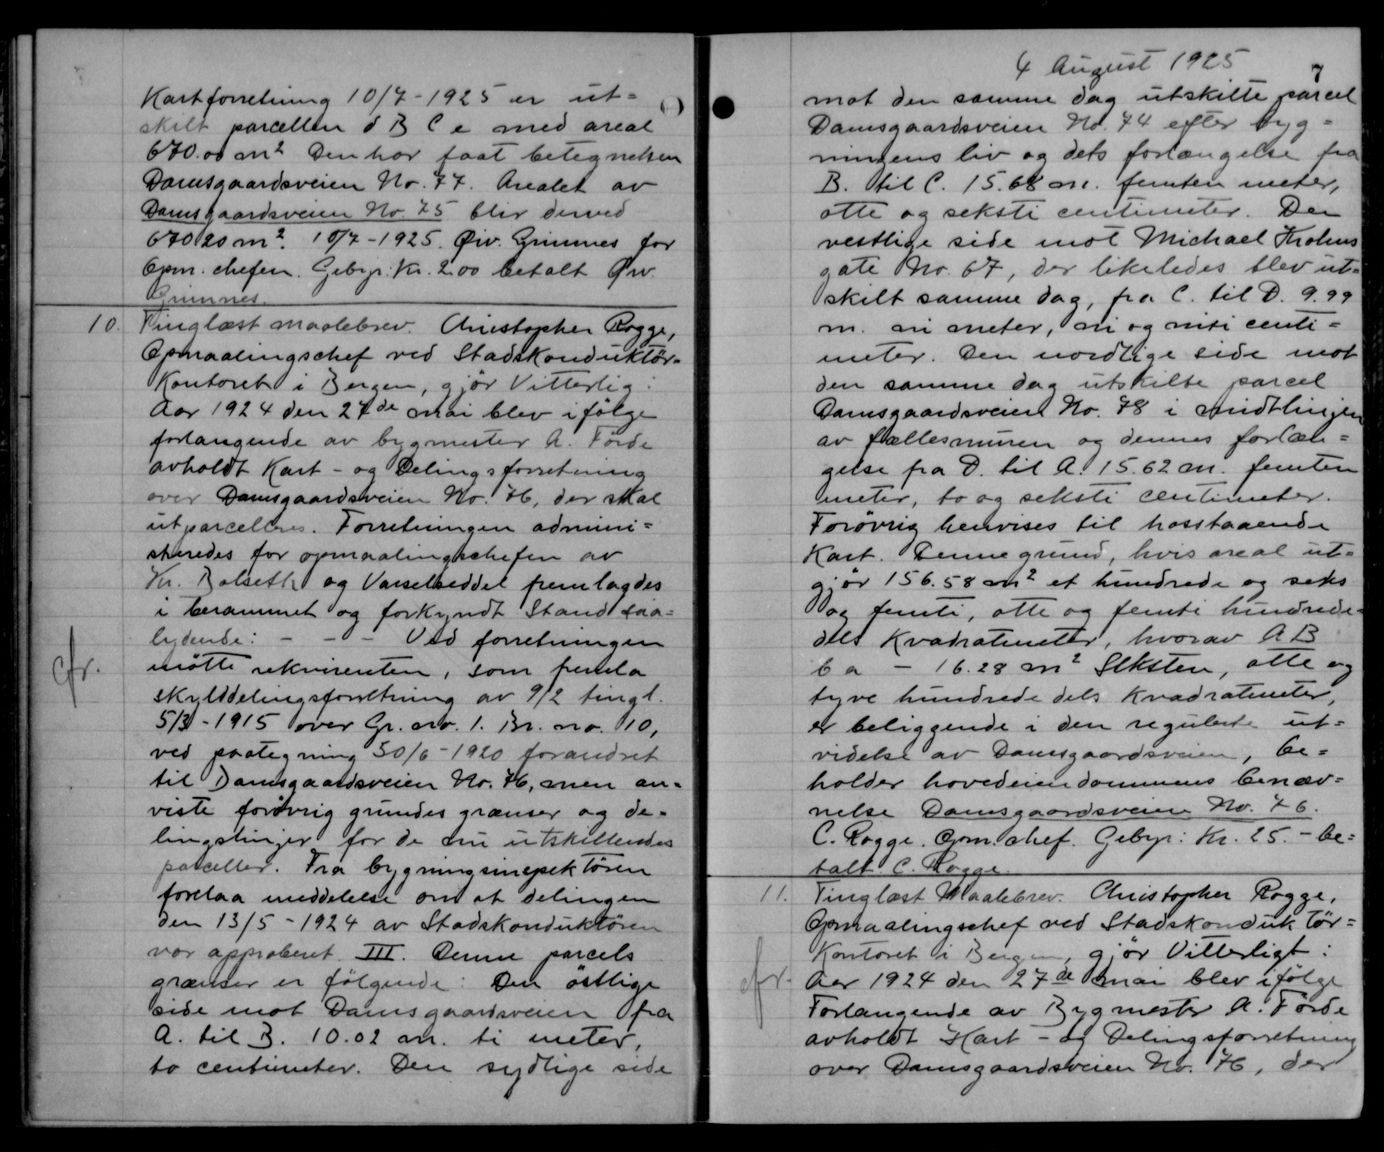 Kartforretning 10/7-1925 er ut=
skilt parcellen d B C e med areal
670.00 m² Den har faat betegnelsen
Damsgaardsveien No. 77. Arealet av
Damsgaardsveien No. 75 blir derved
670 20 m². 10/7-1925. Øiv. Grimnes for
Opm. chefen. Gebyr: Kr. 2.00 betalt Øiv.
Grimnes.
10. Tinglæst maalebrev. Christopher Rogge,
Opmaalingschef ved Stadskonduktör-
Kontoret i Bergen, gjör Vitterlig:
Aar 1924 den 27de mai blev ifölge
forlangende av bygmester A. Förde
avholdt Kart- og Delingsforretning
over Damsgaardsveien No. 76, der skal
utparcelleres. Forretningen admini=
streredes for opmaalingschefen av
Kr. Bolseth og Varselseddel fremlagdes
i berammet og forkyndt Stand saa=
lydende: - - - Ved forretningen
mötte rekvirenten, som fremla
skylddelingsforretning av 9/2 tingl.
5/3-1915 over Gr. no. 1. Br. no. 10,
ved paategning 30/6-1920 forandret
til Damsgaardsveien No. 76, men an-
viste forövrig grundes grænser og de-
lingslinjer for de nu utskillendes
parceller. Fra bygningsinspektören
forelaa meddelelse om at delingen
den 13/5-1924 av Stadskonduktören
var approberet. III. Denne parcels
grænser er fölgende: Den östlige
side mot Damsgaardsveien fra
A. til B. 10.02 m. ti meter,
to centimeter. Den sydlige side
cfr.
4 August 1925
7
mot den samme dag utskilte parcel
Damsgaardsveien No. 74 efter byg=
ningens liv og dets forlængelse fra
B. til C. 15.68 m. femten meter,
otte og seksti centimeter. Den
vestlige side mot Michael Krohns
gate No. 67, der likeledes blev ut=
skilt samme dag, fra C. til D. 9.99
m. ni meter, ni og niti centi=
meter. Den nordlige side mot
den samme dag utskilte parcel
Damsgaardsveien No. 78 i midtlinjen
av fællesmuren og dennes forlæn=
gelse fra D. til A. 15.62 m. femten
meter, to og seksti centimeter.
Forövrig henvises til hosstaaende
Kart. Denne grund, hvis areal ut=
gjör 156.58 m² et hundrede og seks
og femti, otte og femti hundrede-
dels kvadratmeter, hvorav A B
b a - 16.28 m² Seksten, otte og
tyve hundrede dels kvadratmeter,
er beliggende i den regulerte ut=
videlse av Damsgaardsveien, be=
holder hovedeiendommens benæv=
nelse Damsgaardsveien No. 76.
C. Rogge. Opm. chef. Gebyr: Kr. 25.- be=
talt C. Rogge.
11. Tinglæst Maalebrev. Christopher Rogge,
Opmaalingschef ved Stadskonduktör=
Kontoret i Bergen, gjör Vitterligt:
Aar 1924 den 27de mai blev ifölge
Forlangende av Bygmester A. Förde
avholdt Kart- og Delingsforretning
over Damsgaardsveien No. 76, der
cfr.